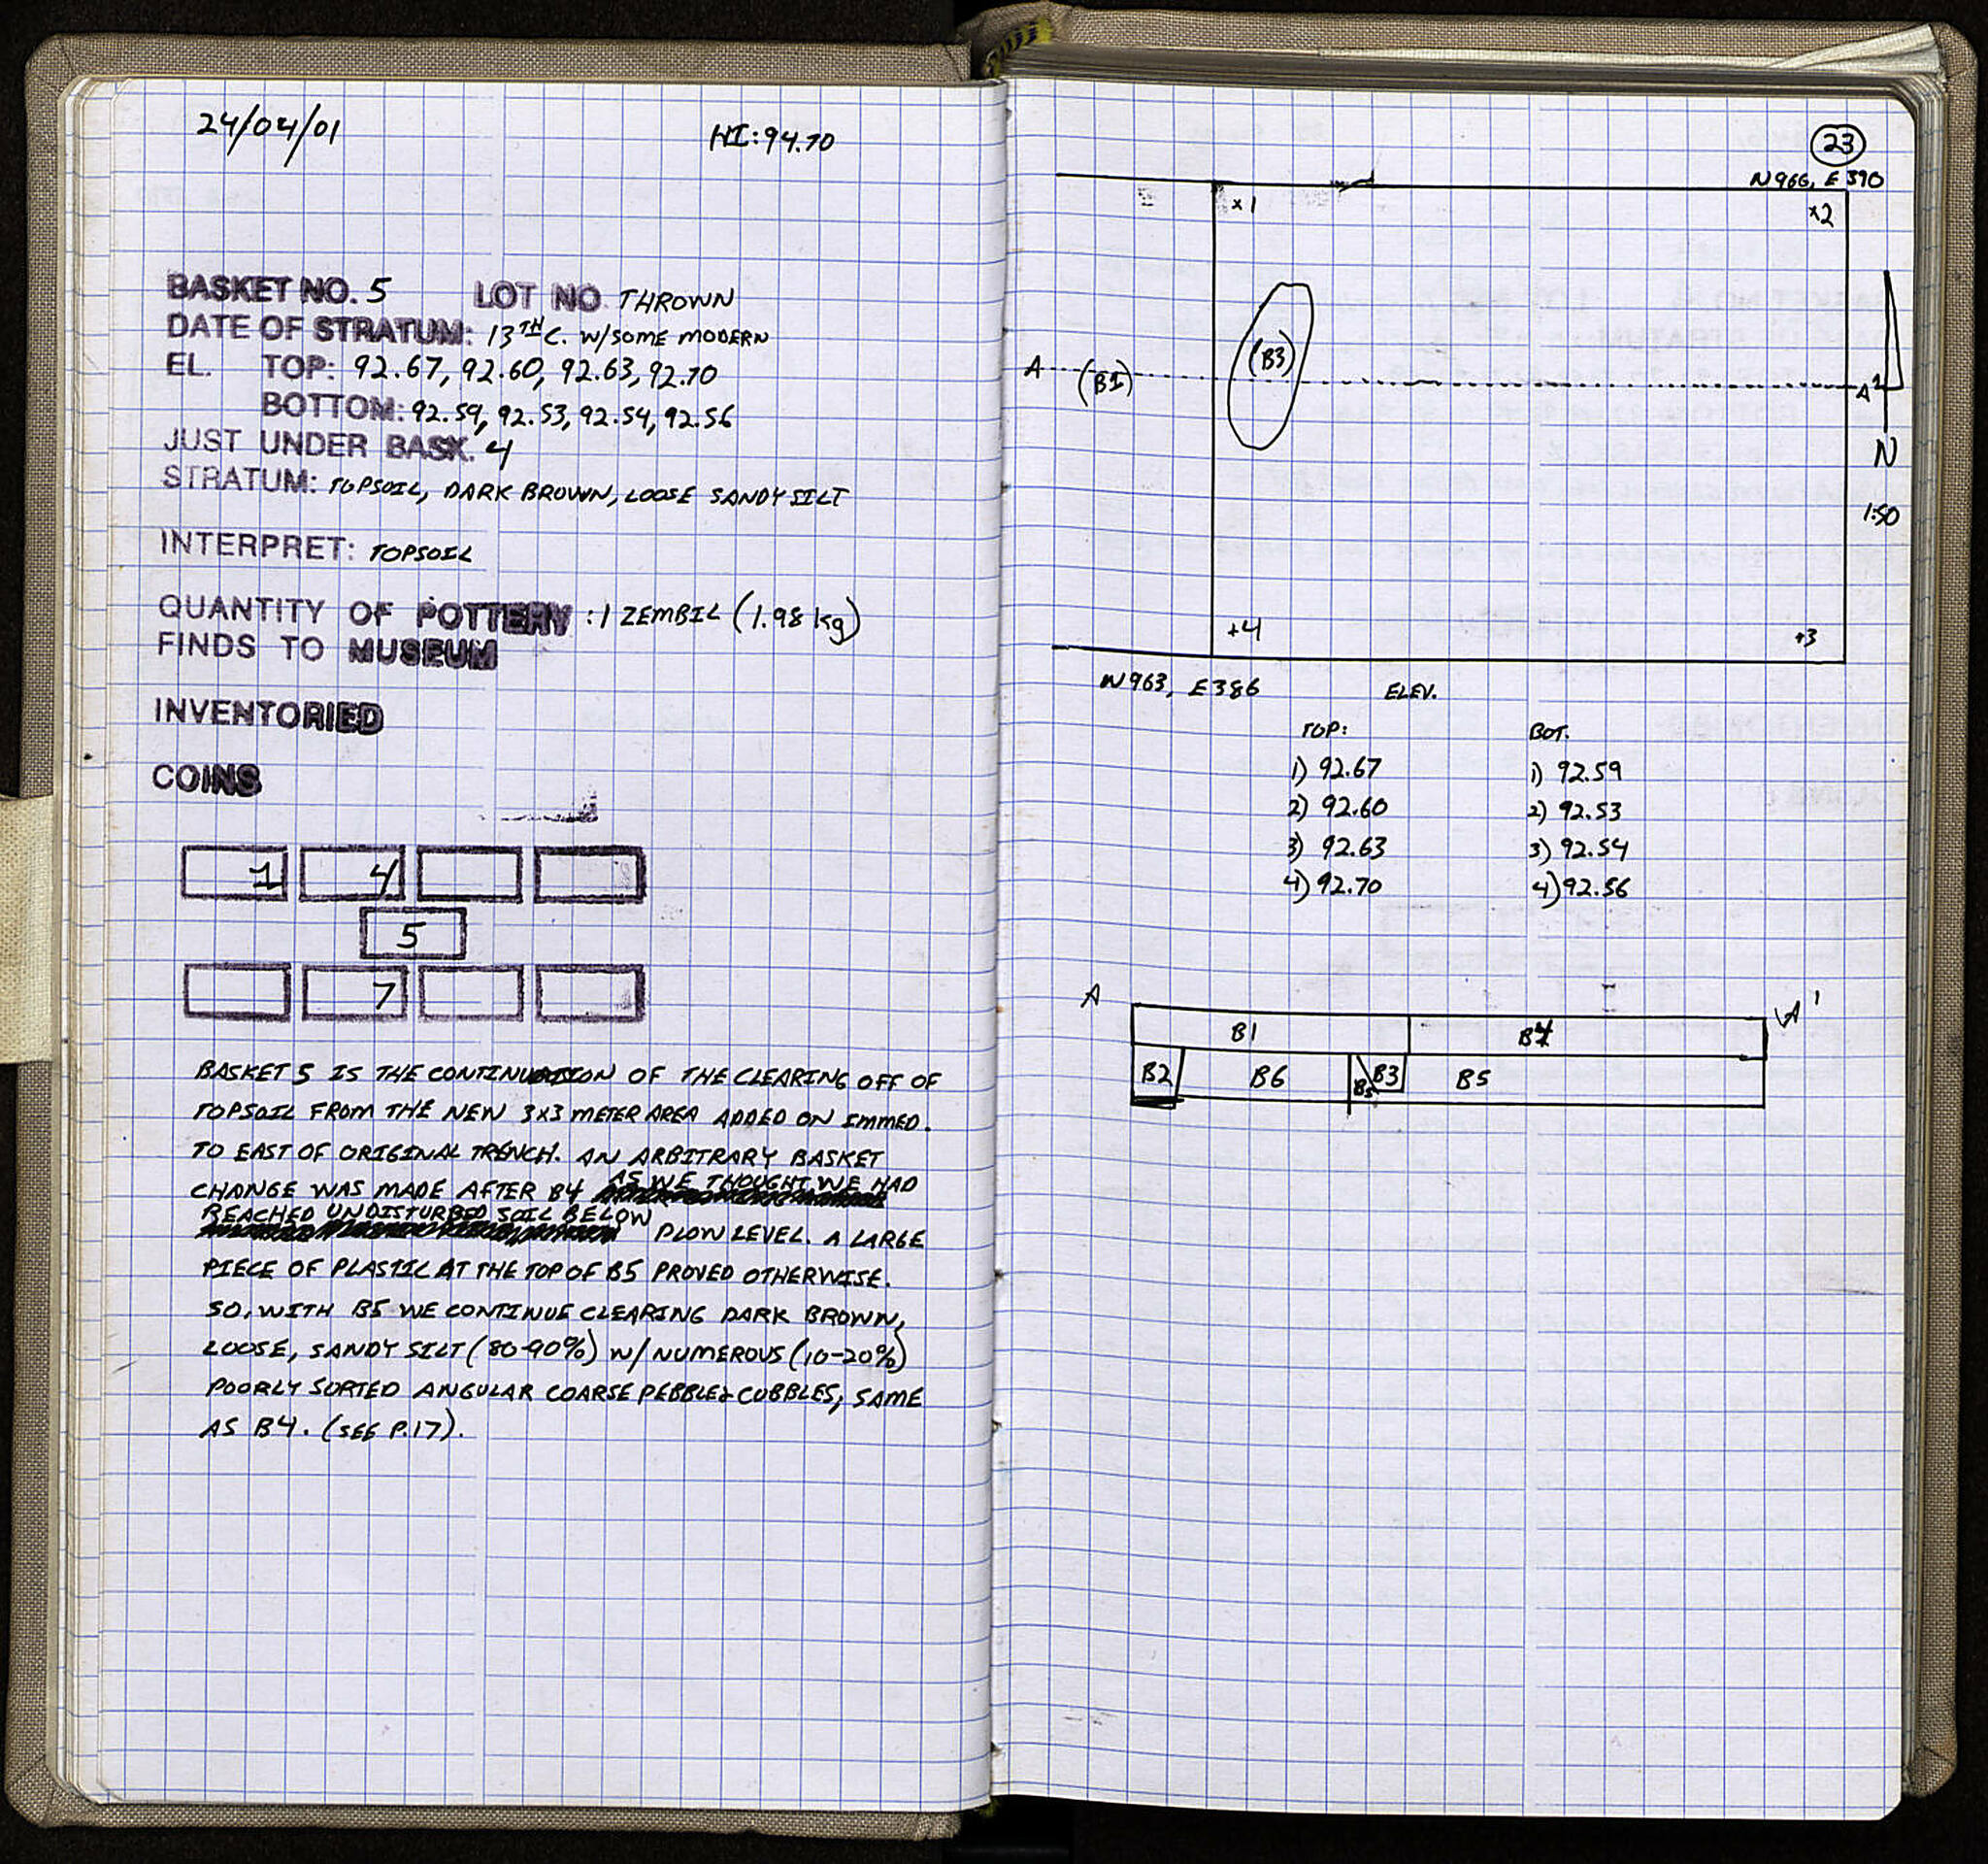 24/04/01 HI: 94.70
BASKET NO. 5 LOT NO. THROWN
DATE OF STRATUM: 13TH C. W/SOME MODERN
EL. TOP: 92.67, 92.60, 92.63, 92.70
BOTTOM: 92.59, 92.53, 92.54, 92.56
JUST UNDER BASK. 4
STRATUM: TOPSOIL, DARK BROWN, LOOSE SANDY SILT
INTERPRET: TOPSOIL
QUANTITY OF POTTERY: 1 ZEMBIL (1.98 kg)
FINDS TO MUSEUM
INVENTORIED
COINS
1 4
5
7
BASKET 5 IS THE CONTINUATION OF THE CLEARING OFF OF
TOPSOIL FROM THE NEW 3x3 METER AREA ADDED ON IMMED.
TO EAST OF ORIGINAL TRENCH. AN ARBITRARY BASKET
CHANGE WAS MADE AFTER B4 AS WE THOUGHT WE HAD
REACHED UNDISTURBED SOIL BELOW PLOW LEVEL. A LARGE
PIECE OF PLASTIC AT THE TOP OF B5 PROVED OTHERWISE.
SO, WITH B5 WE CONTINUE CLEARING DARK BROWN,
LOOSE, SANDY SILT (80-90%) W/ NUMEROUS (10-20%)
POORLY SORTED ANGULAR COARSE PEBBLE & COBBLES, SAME
AS B4. (SEE P.17).
23
N966, E390
x1 x2
A (B1) (B3) A1
N
1:50
+4 +3
N963, E386 ELEV.
TOP: BOT.
1) 92.67 1) 92.59
2) 92.60 2) 92.53
3) 92.63 3) 92.54
4) 92.70 4) 92.56
A A'
B1 B4
B2 B6 B5 B3 B5